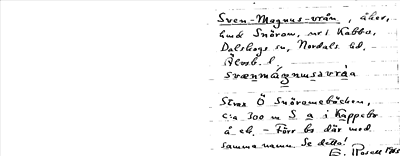 Sven-Magnus-vrån, åker,
hmd Snöran, nr 1 Kabbo,
Dalskogs sn, Nordals hd.
Älvsb. l.
svænmágnusavråa
Strax Ö Snöranebäcken,
c:a 300 m S a i Kappebo
å ek. - Förr bs där med
samma namn. Se detta!
E. Rosell